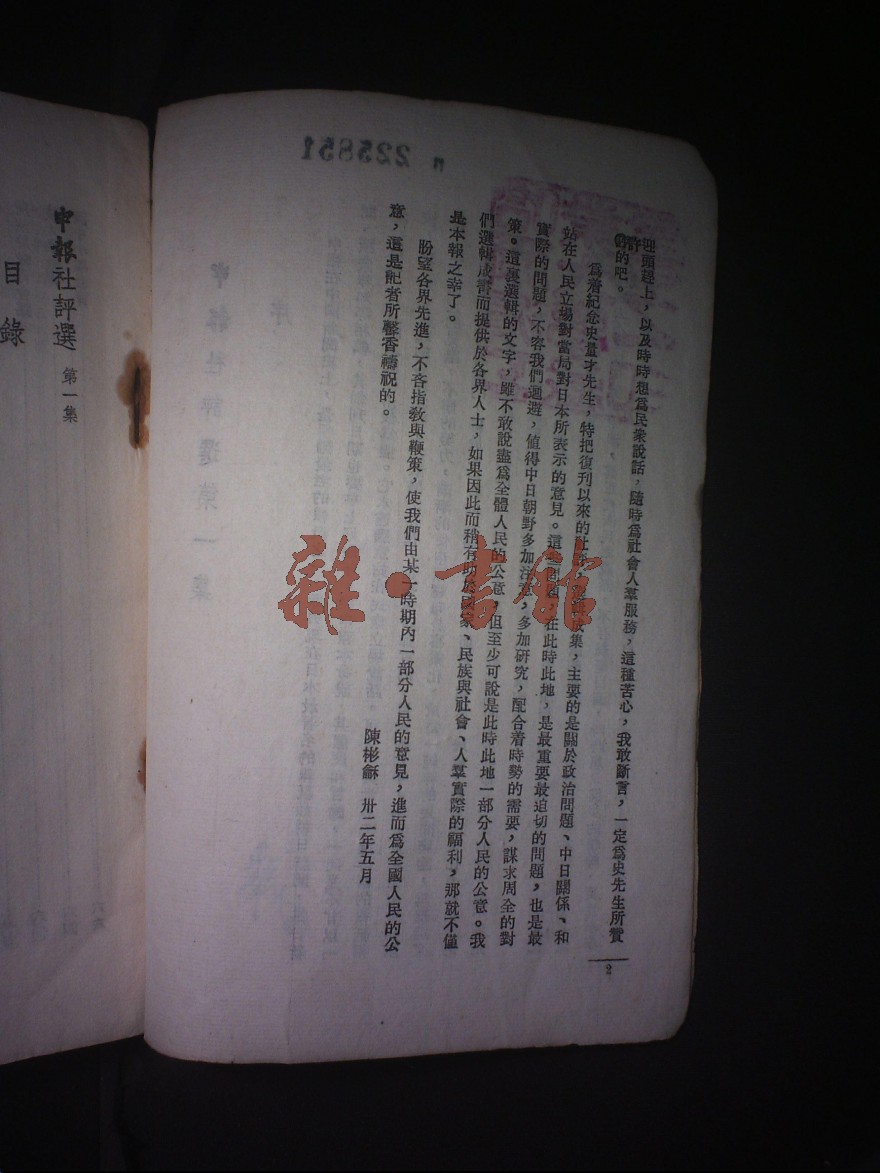 迴頭趕上，以及時時想爲民衆說話，隨時爲社會人羣服務，這種苦心，我敢斷言，一定爲史先生所贊
許的吧。
爲着紀念史量才先生，特把復刊以來的社評，選輯成集，主要的是關於政治問題、中日關係、和
站在人民立場對當局對日本所表示的意見。這些問題，在此時此地，是最重要最迫切的問題，也是最
實際的問題，不容我們迴避，値得中日朝野多加注意，多加研究，配合着時勢的需要，謀求周全的對
策。這裏選輯的文字，雖不敢說盡爲全體人民的公意，但至少可說是此時此地一部分人民的公意。我
們選輯成書而提供於各界人士，如果因此而稍有助於國家、民族與社會、人羣實際的福利，那就不僅
是本報之幸了。
盼望各界先進，不吝指敎與鞭策，使我們由某一時期內一部分人民的意見，進而爲全國人民的公
意，這是記者所馨香禱祝的。
陳彬龢　卅二年五月
2
申報社評選　第一集
目錄
雜·書館
225851